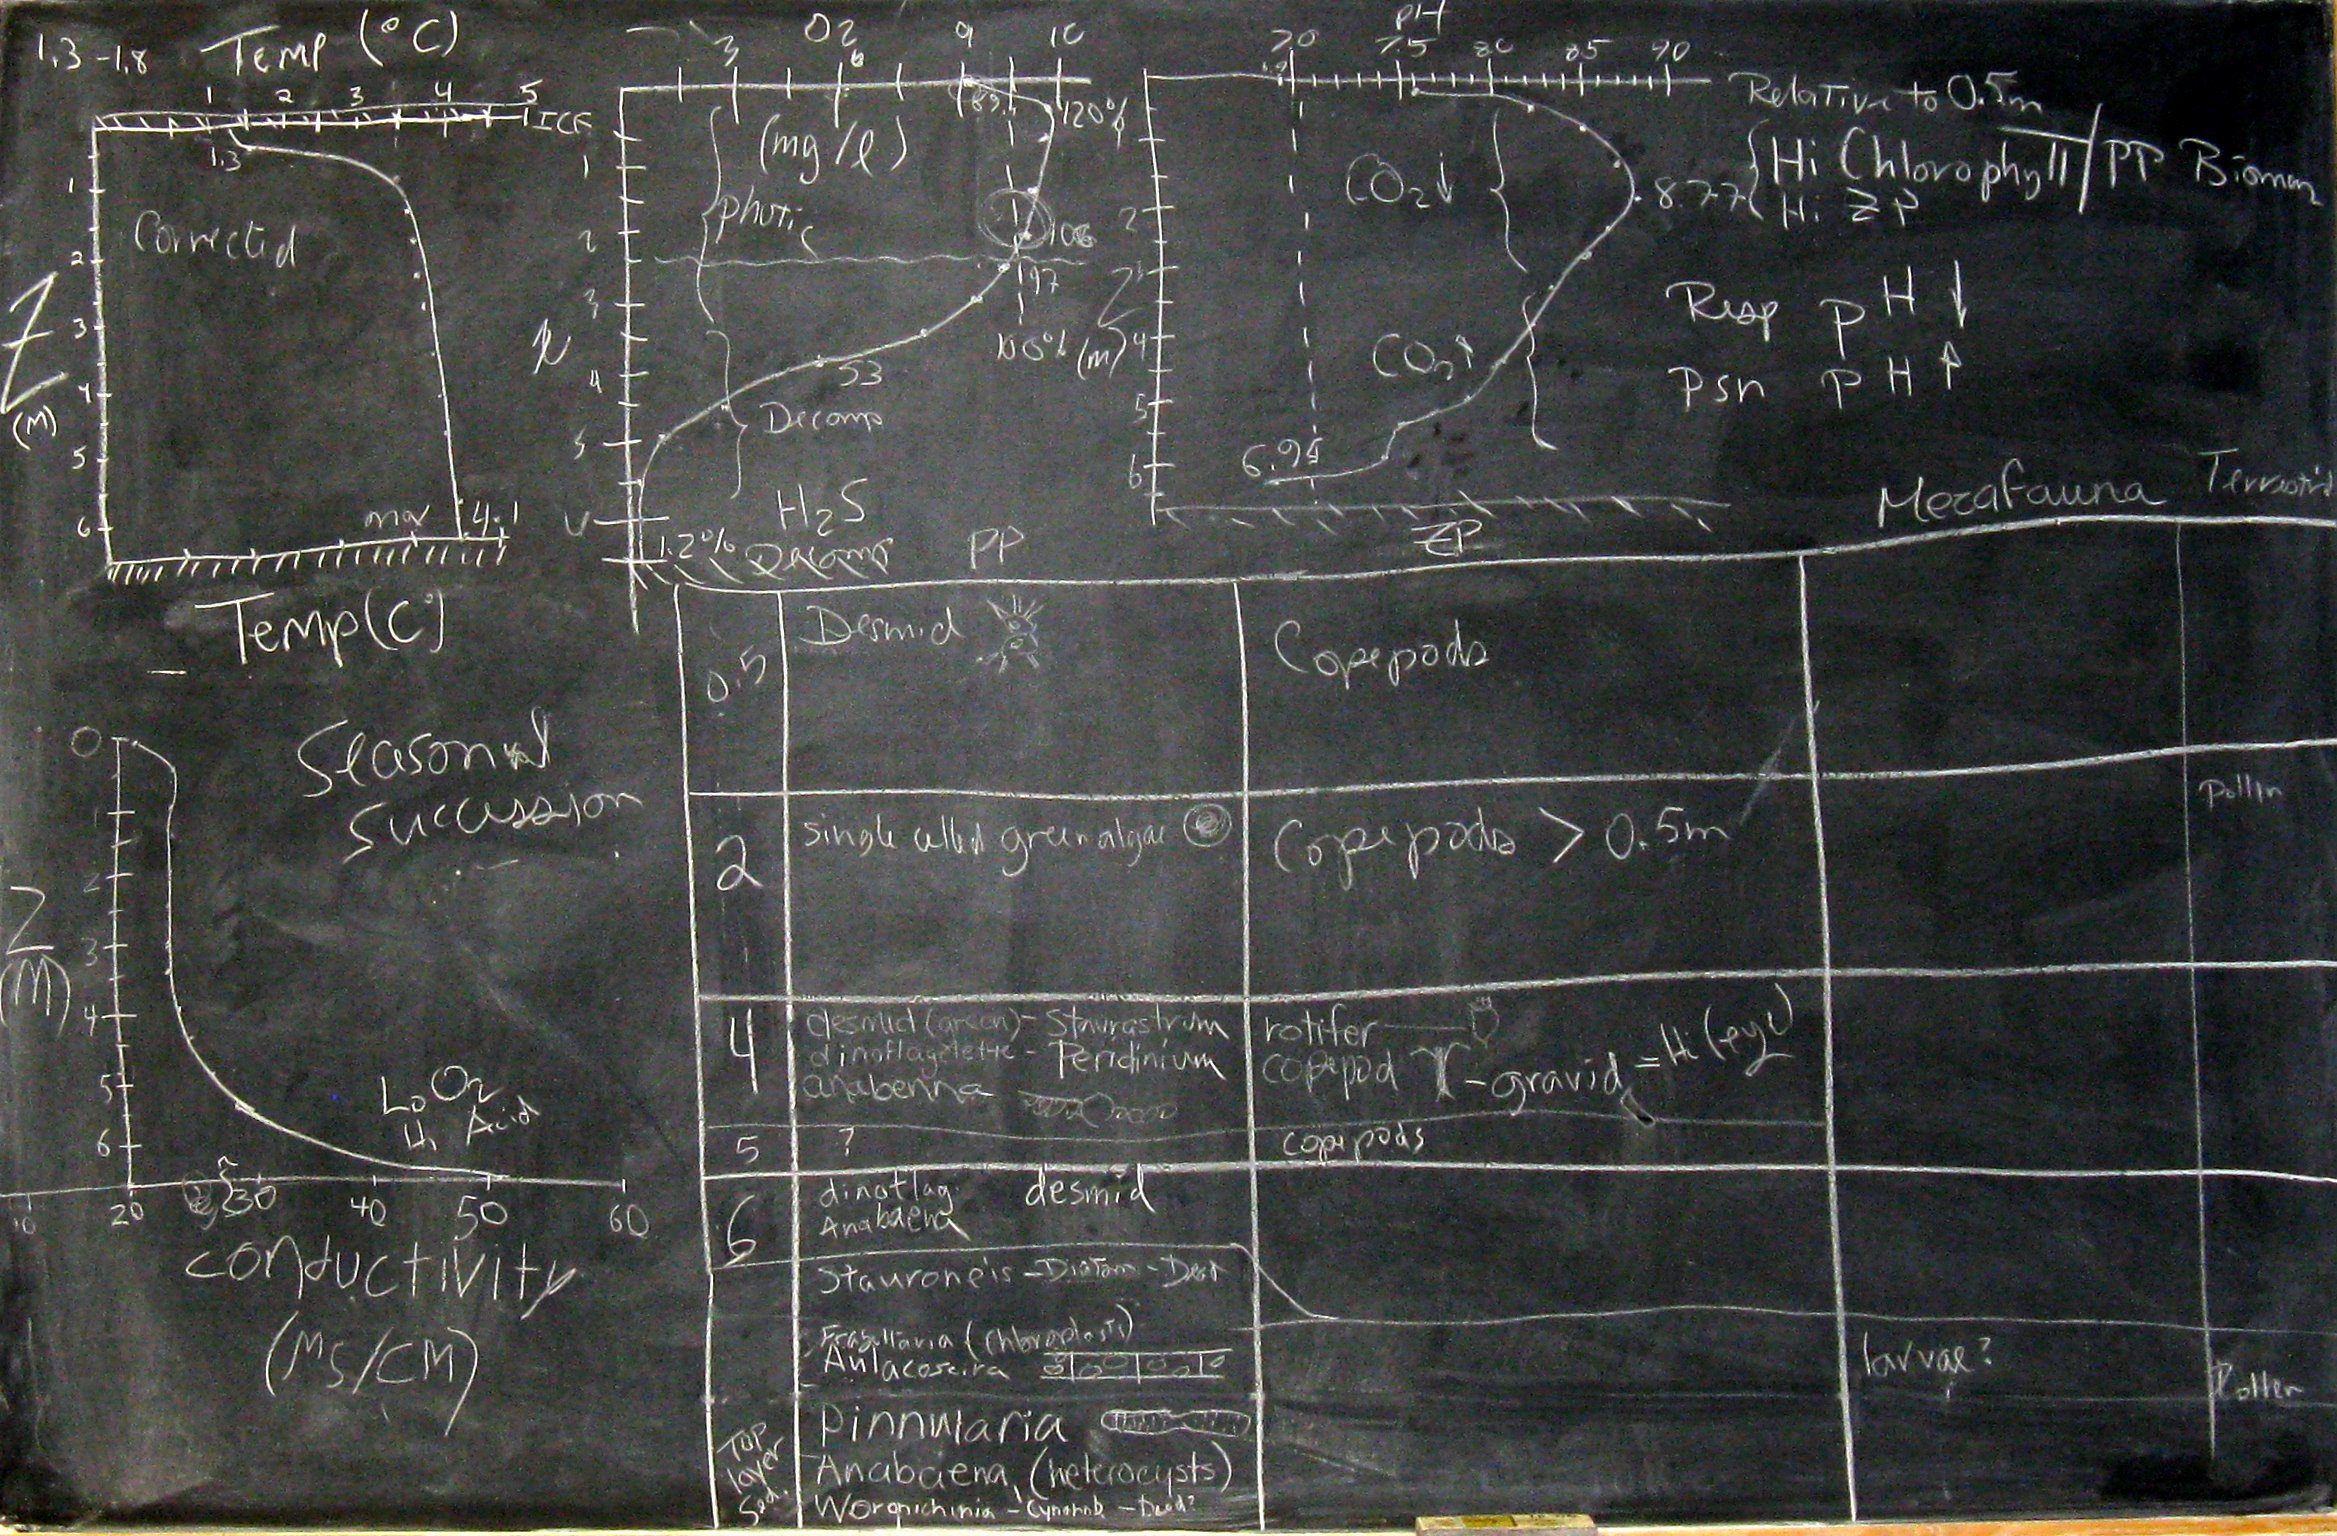 1.3 - 1.8 Temp (°C)
1 2 3 4 5
ICE
1.3
Corrected
Z
(M)
1
2
3
4
5
6
4.1
O2
3 6 9 10
(mg/l)
120%
photic
106
97
100%
53
Decomp
H2S
1.2%
Decomp
1
2
3
4
5
pH
70 75 80 85 90
CO2↓
8.77
CO2↑
6.95
Z
(m)
2
4
5
6
Relative to 0.5m
Hi Chlorophyll/PP
Hi ZP
Resp pH ↓
Psn pH ↑
Temp(C°)
Seasonal
Succession
0
1
2
3
4
5
6
Z
(M)
Lo O2
Hi Acid
10 20 30 40 50 60
Conductivity
(MS/CM)
PP ZP Megafauna
0.5 Desmid Copepods
2 single celled green algae Copepods > 0.5m Pollen
4 desmid (green) - Staurastrum rotifer
dinoflagelette - Peridinium copepod - gravid = Hi (egg)
anabenna
5 ? copepods
6 dinoflag. desmid
Anabaena
Stauroneis - Diatom - Dead
Fragillaria (chloroplasts)
Aulacoseira larvae? Pollen
Top
layer
Sed.
Pinnularia
Anabaena, (heterocysts)
Woronichinia - Cynanob - Dead?